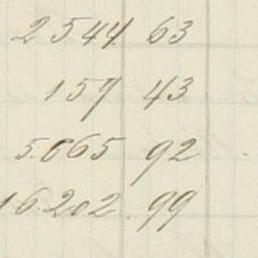 2544 63
157 43
5.065 92
16.202.99